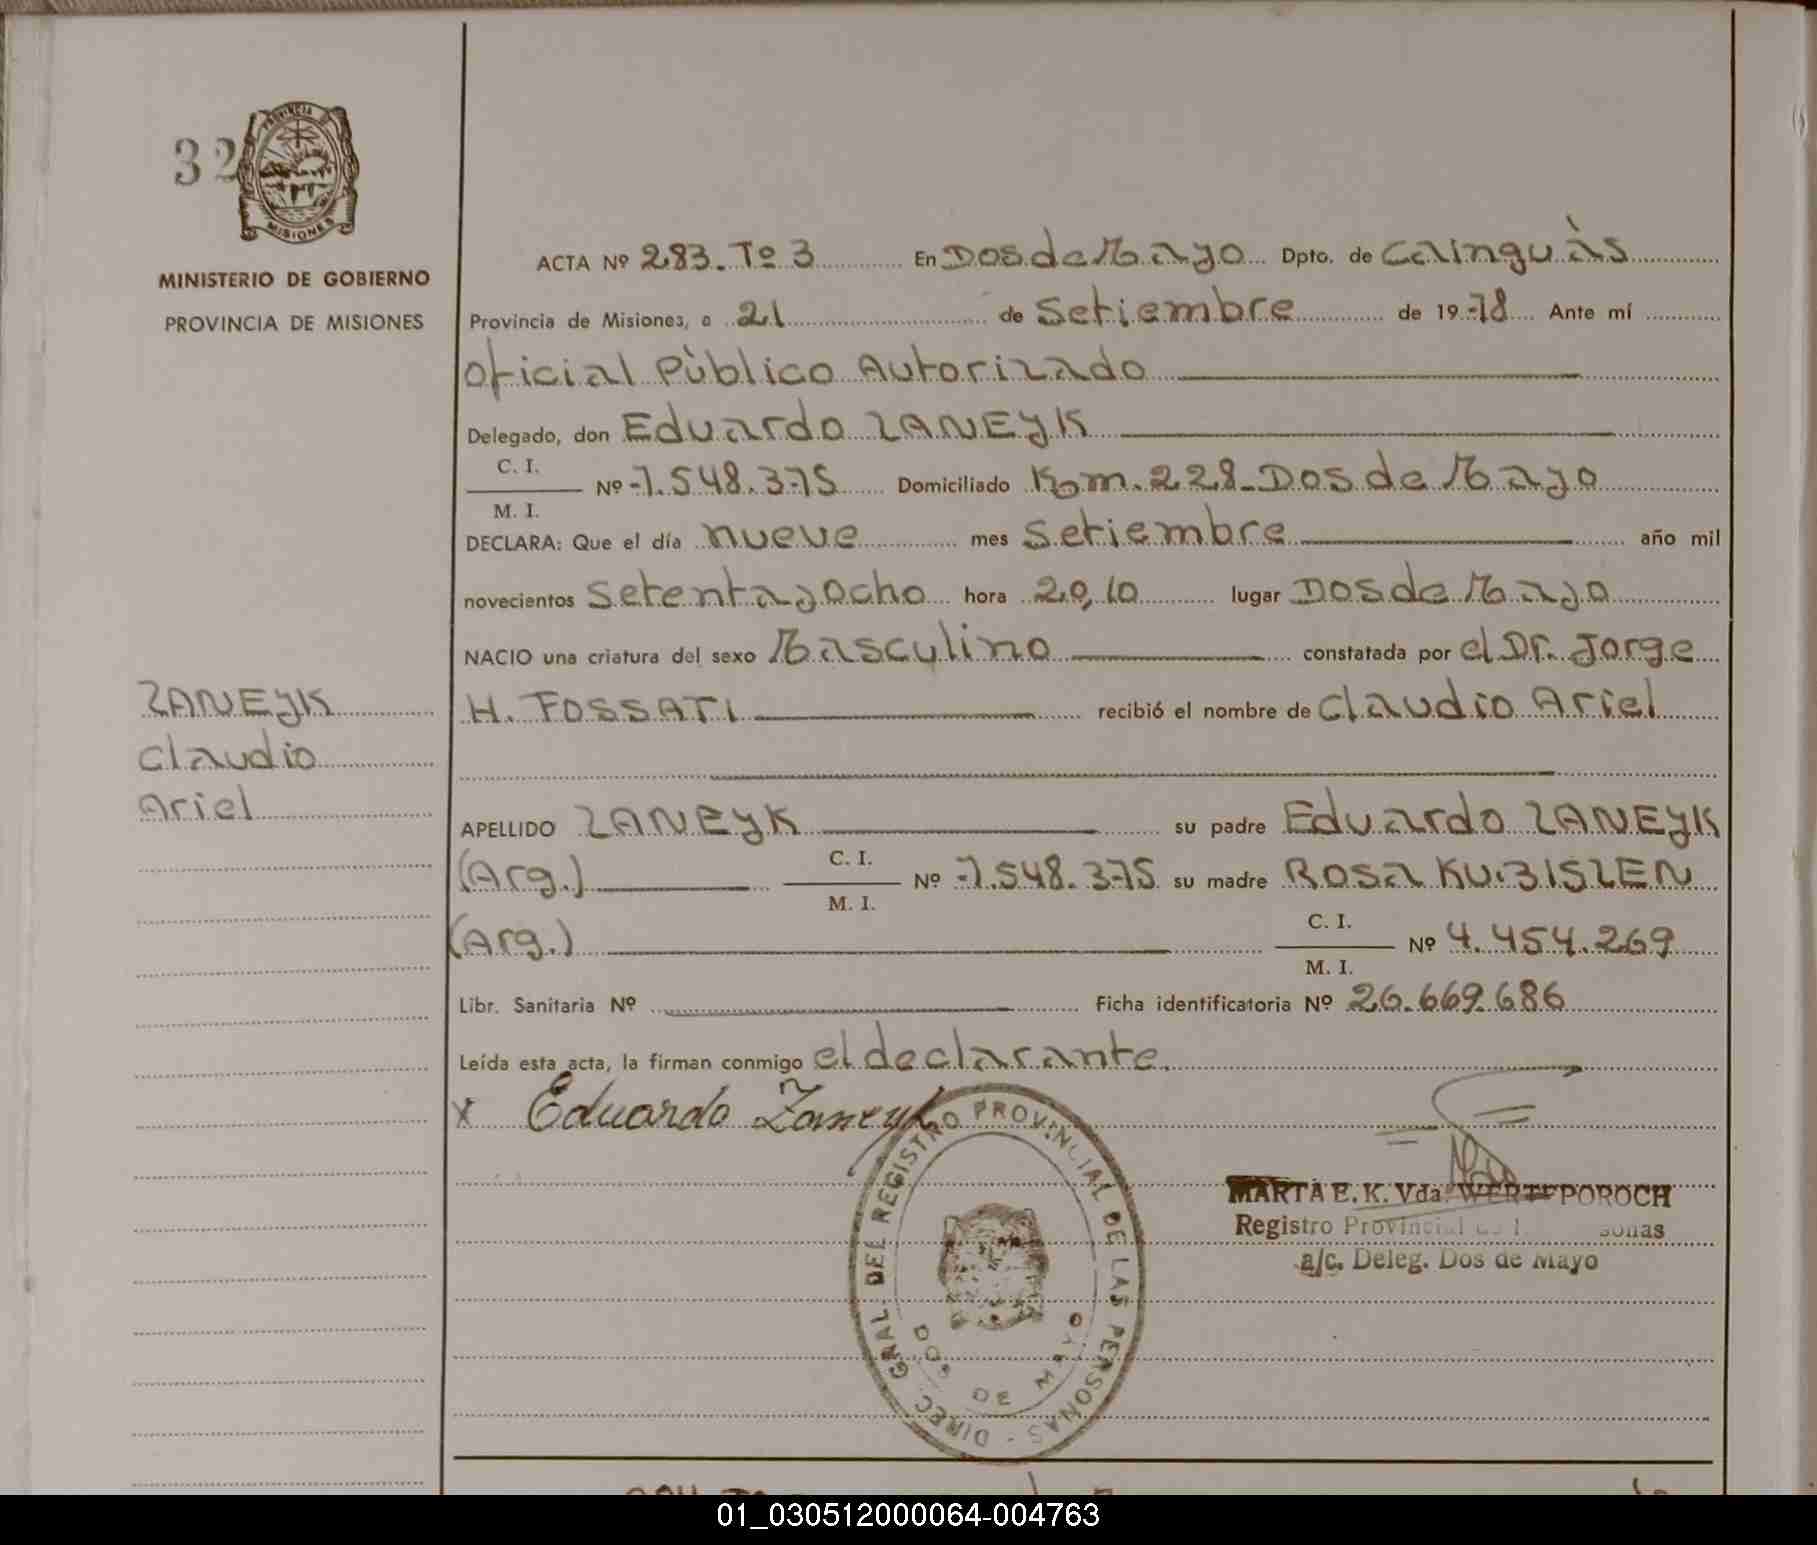 32
PROVINCIA DE
MISIONES
MINISTERIO DE GOBIERNO
PROVINCIA DE MISIONES
ZANEYK
Claudio
Ariel
ACTA Nº 283. Tº 3 En Dos de Mayo Dpto. de Cainguàs
Provincia de Misiones, a 21 de Setiembre de 19 78 Ante mí
Oficial Pùblico Autorizado
Delegado, don Eduardo ZANEYK
C. I.
Nº 7.548.375 Domiciliado Km. 228 - Dos de Mayo
M. I.
DECLARA: Que el día nueve mes Setiembre año mil
novecientos Setenta y Ocho hora 20,10 lugar Dos de Mayo
NACIO una criatura del sexo Masculino constatada por el Dr. Jorge
H. FOSSATI recibió el nombre de Claudio Ariel
APELLIDO ZANEYK su padre Eduardo ZANEYK
C. I.
(Arg.) Nº 7.548.375 su madre ROSA KUBISZEN
M. I.
C. I.
(Arg.) Nº 4.454.269
M. I.
Libr. Sanitaria Nº Ficha identificatoria Nº 26.669.686
Leída esta acta, la firman conmigo el declarante.
x Eduardo Zaneyk
DIREC. GRAL. DEL REGISTRO PROVINCIAL DE LAS PERSONAS -
DOS DE MAYO
MARTA E. K. Vda WERTEPOROCH
Registro Provincial
a/c. Deleg. Dos de Mayo
01_030512000064-004763